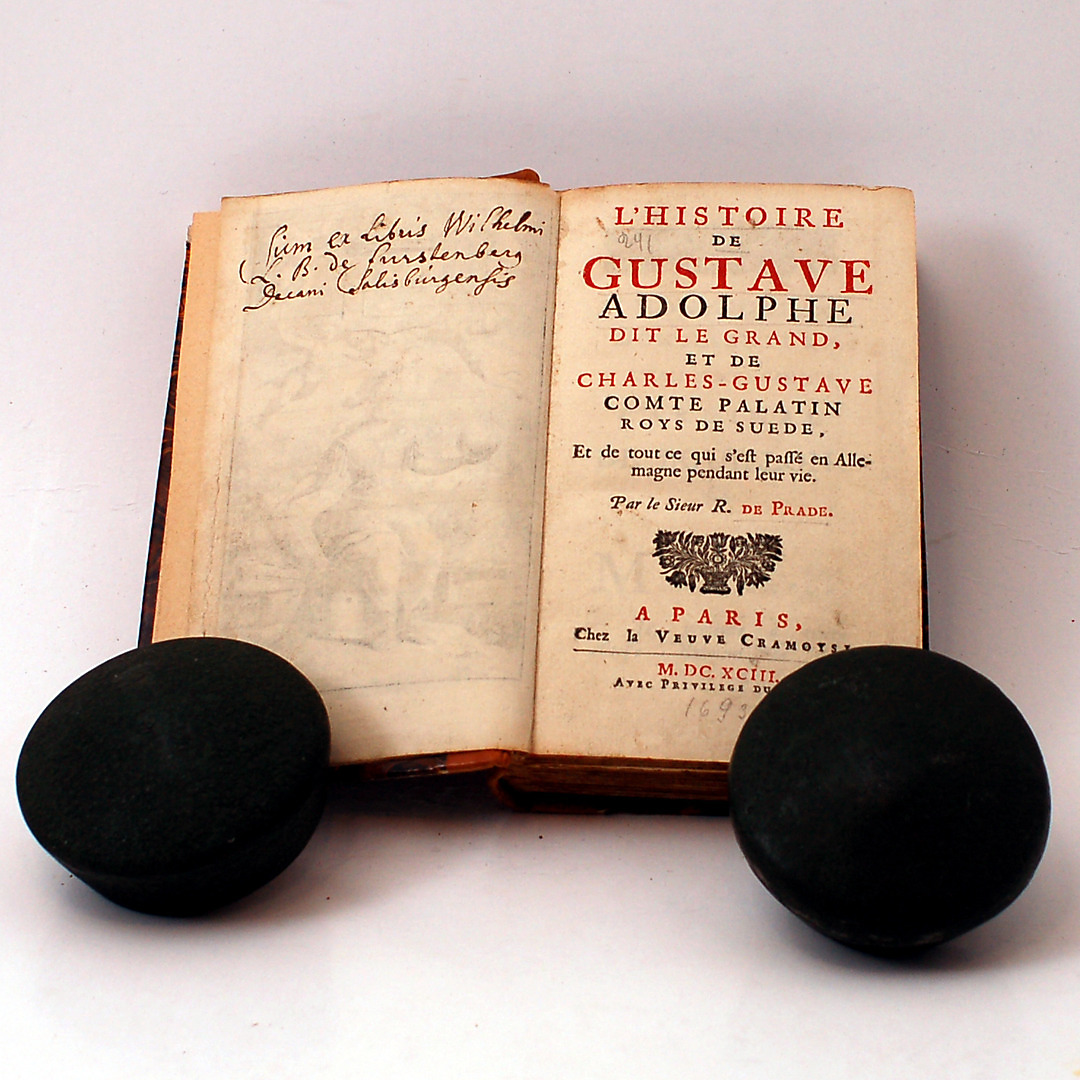 Sum ex Libris Wilhelmi
L. B. de Furstenberg
Decani Salisburgensis
L'HISTOIRE
DE
GUSTAVE
ADOLPHE
DIT LE GRAND,
ET DE
CHARLES-GUSTAVE
COMTE PALATIN
ROYS DE SUEDE,
Et de tout ce qui s'est passé en Alle-
magne pendant leur vie.
Par le Sieur R. DE PRADE.
A PARIS,
Chez la VEUVE CRAMOYSI
M. DC. XCIII.
AVEC PRIVILEGE DU
1693